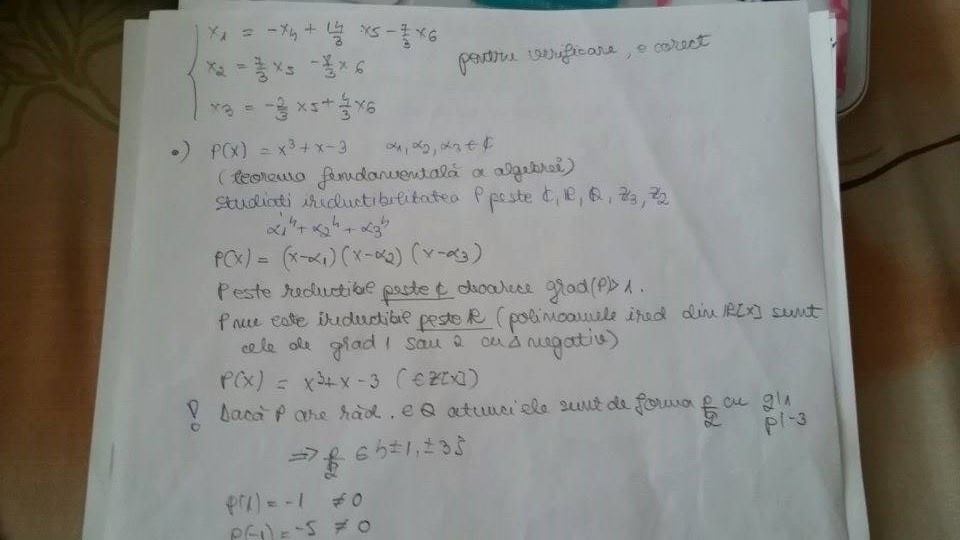 x₁ = -x₄ + 14/3 x₅ - 7/3 x₆
x₂ = 7/3 x₅ - 7/3 x₆ pentru verificare, e corect
x₃ = -2/3 x₅ + 4/3 x₆
•) P(X) = x³ + x - 3 α₁, α₂, α₃ ∈ ℂ
(teorema fundamentală a algebrei)
Studiati ireductibilitatea P peste ℂ, ℝ, ℚ, ℤ₃, ℤ₂
α₁⁴ + α₂⁴ + α₃⁴
P(X) = (x-α₁)(x-α₂)(x-α₃)
P este reductibil peste ℂ deoarece grad(P)>1.
P nu este ireductibil peste ℝ (polinoamele ired din ℝ[X] sunt
cele de grad 1 sau 2 cu Δ negativ)
P(X) = x³+x-3 (∈ℤ[X])
! Dacă P are răd. ∈ ℚ atunci ele sunt de forma p/q cu q|1
p|-3
⇒ p/q ∈ {±1, ±3}
P(1) = -1 ≠0
P(-1) = -5 ≠ 0